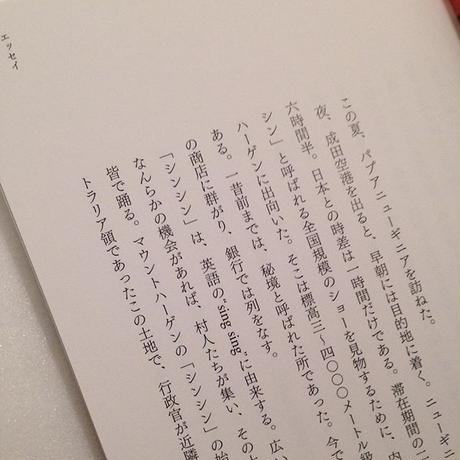 エッセイ
この夏、パプアニューギニアを訪ねた。
夜、成田空港を出ると、早朝には目的地に着く。ニューギニ
六時間半。日本との時差は一時間だけである。滞在期間の二
シン」と呼ばれる全国規模のショーを見物するために、内
ハーゲンに出向いた。そこは標高三〜四〇〇〇メートル級
ある。一昔前までは、秘境と呼ばれた所であった。今で
の商店に群がり、銀行では列をなす。
「シンシン」は、英語の"sing sing"に由来する。広い
なんらかの機会があれば、村人たちが集い、その土
皆で踊る。マウントハーゲンの「シンシン」の始
トラリア領であったこの土地で、行政官が近隣